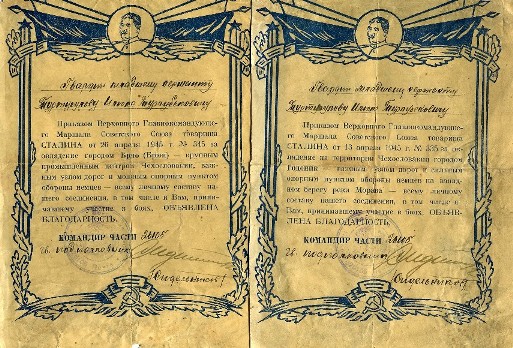 Гвардии младшему сержанту
Приказом Верховного Главнокомандующего
Маршала Советского Союза товарища
СТАЛИНА от 26 апреля 1945 г. № 345 за
овладение городом Брно (Брюн) — крупным
промышленным центром Чехословакии, важным
узлом дорог и мощным опорным пунктом
обороны немцев — всему личному составу
нашего соединения, в том числе и Вам, принимавшему
участие в боях, ОБЪЯВЛЕНА
БЛАГОДАРНОСТЬ.
КОМАНДИР ЧАСТИ
гв. подполковник
Гвардии младшему сержанту
Приказом Верховного Главнокомандующего
Маршала Советского Союза товарища
СТАЛИНА от 13 апреля 1945 г. № 335 за овладение
на территории Чехословакии городом
Годонин — важным узлом дорог и сильным
опорным пунктом обороны немцев на западном
берегу реки Морава — всему личному
составу нашего соединения, в том числе и
Вам, принимавшему участие в боях, ОБЪЯВЛЕНА
БЛАГОДАРНОСТЬ.
КОМАНДИР ЧАСТИ
гв. подполковник